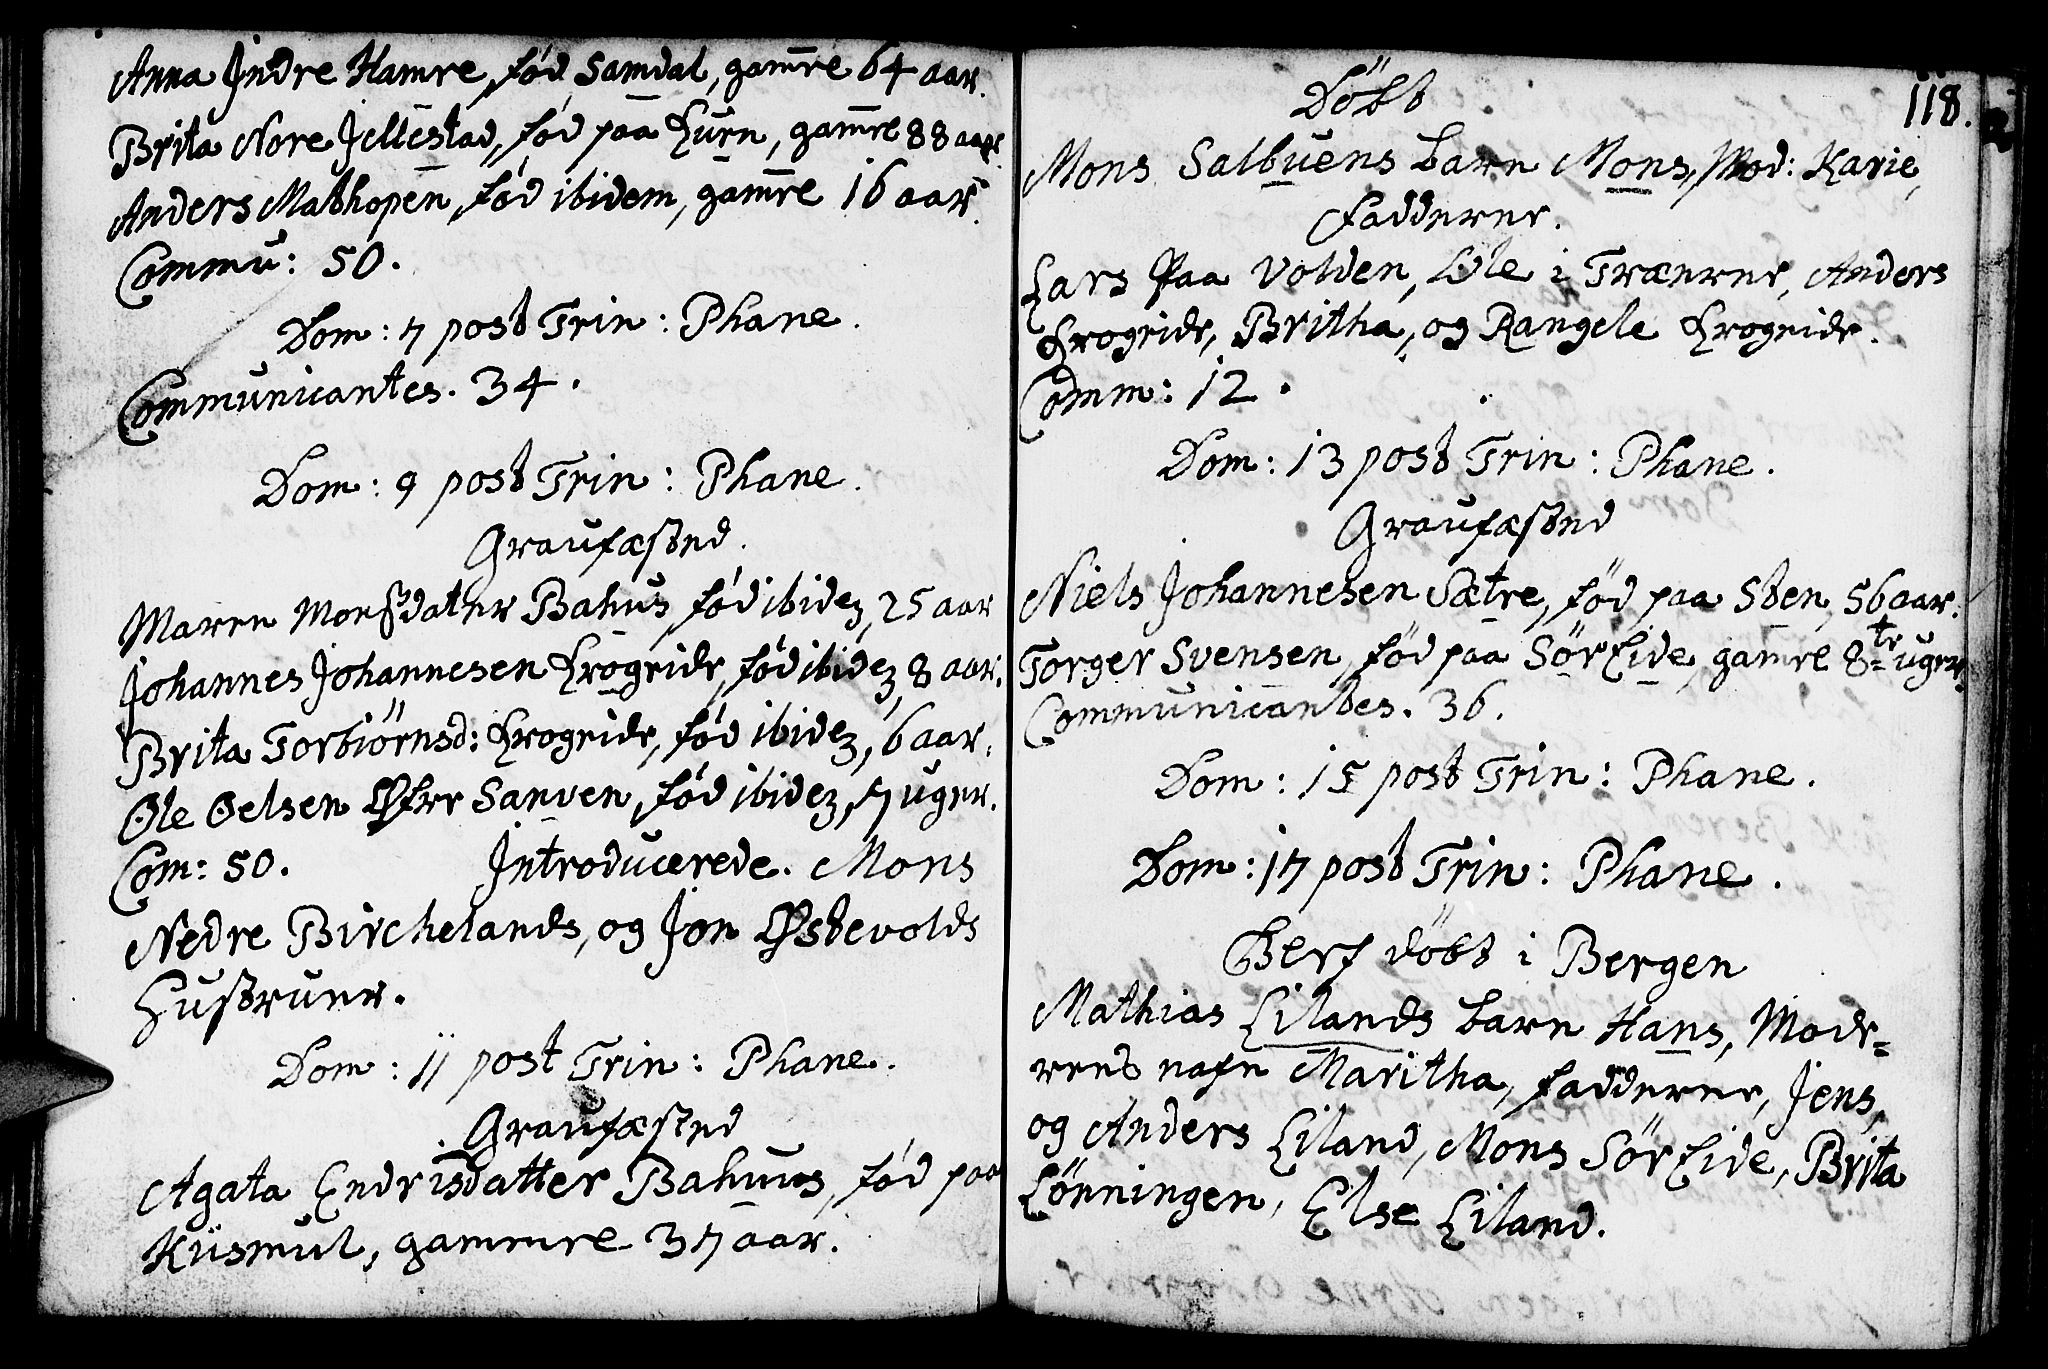 Anna Jndre Hamre, fød Samdal, gam̅re 64 aar.
Brita Nore Jllestad, fød paa Lurn, gam̅re 88 aar
Anders Mathopen, fød ibidem, gam̅re 16 aar.
Commu: 50.
Dom: 7 post Trin: Phane.
Communicantes. 34.
Dom: 9 post Trin: Phane.
Graufæsted.
Maren Monsdater Bahus, fød ibidez, 25 aar
Johannes Johannesen Krogeide, fød ibidez 8 aar.
Brita Torbiørnsd: Krogeide, fød ibidez, 6 aar.
Ole Oelsen Øfre Sanven, fød ibidez, 7 uger.
Com: 50. Introducerede. Mons
Nedre Birchelands, og Jon Østevolds
Hustruer.
Dom: 11 post Trin: Phane.
Graufæsted
Agata Endrisdatter Bahuus, fød paa
Kiismul, gammre 37 aar.
118.
Döbt
Mons Salbuens barn Mons, Mod: Karie,
Fadderne.
Lars Paa Volden, Ole i Træerne, Anders
Krogeide, Britha, og Rangele Krogeide.
Comm: 12.
Dom: 13 post Trin: Phane.
Graufæsted
Niels Johannesen Sætre, fød paa Sten, 56 aar.
Torger Svensen, fød paa Sör Eide, gamre 8te uger.
Communicantes. 36.
Dom: 15 post Trin: Phane.
Dom: 17 post Trin: Phane.
döbt i Bergen
Mathias Lilands barn Hans, Mode=
rens nafn Maritha, fadderne, Jens,
og Anders Liland, Mons Sör Eide, Brita
Lönningen, Else Liland.